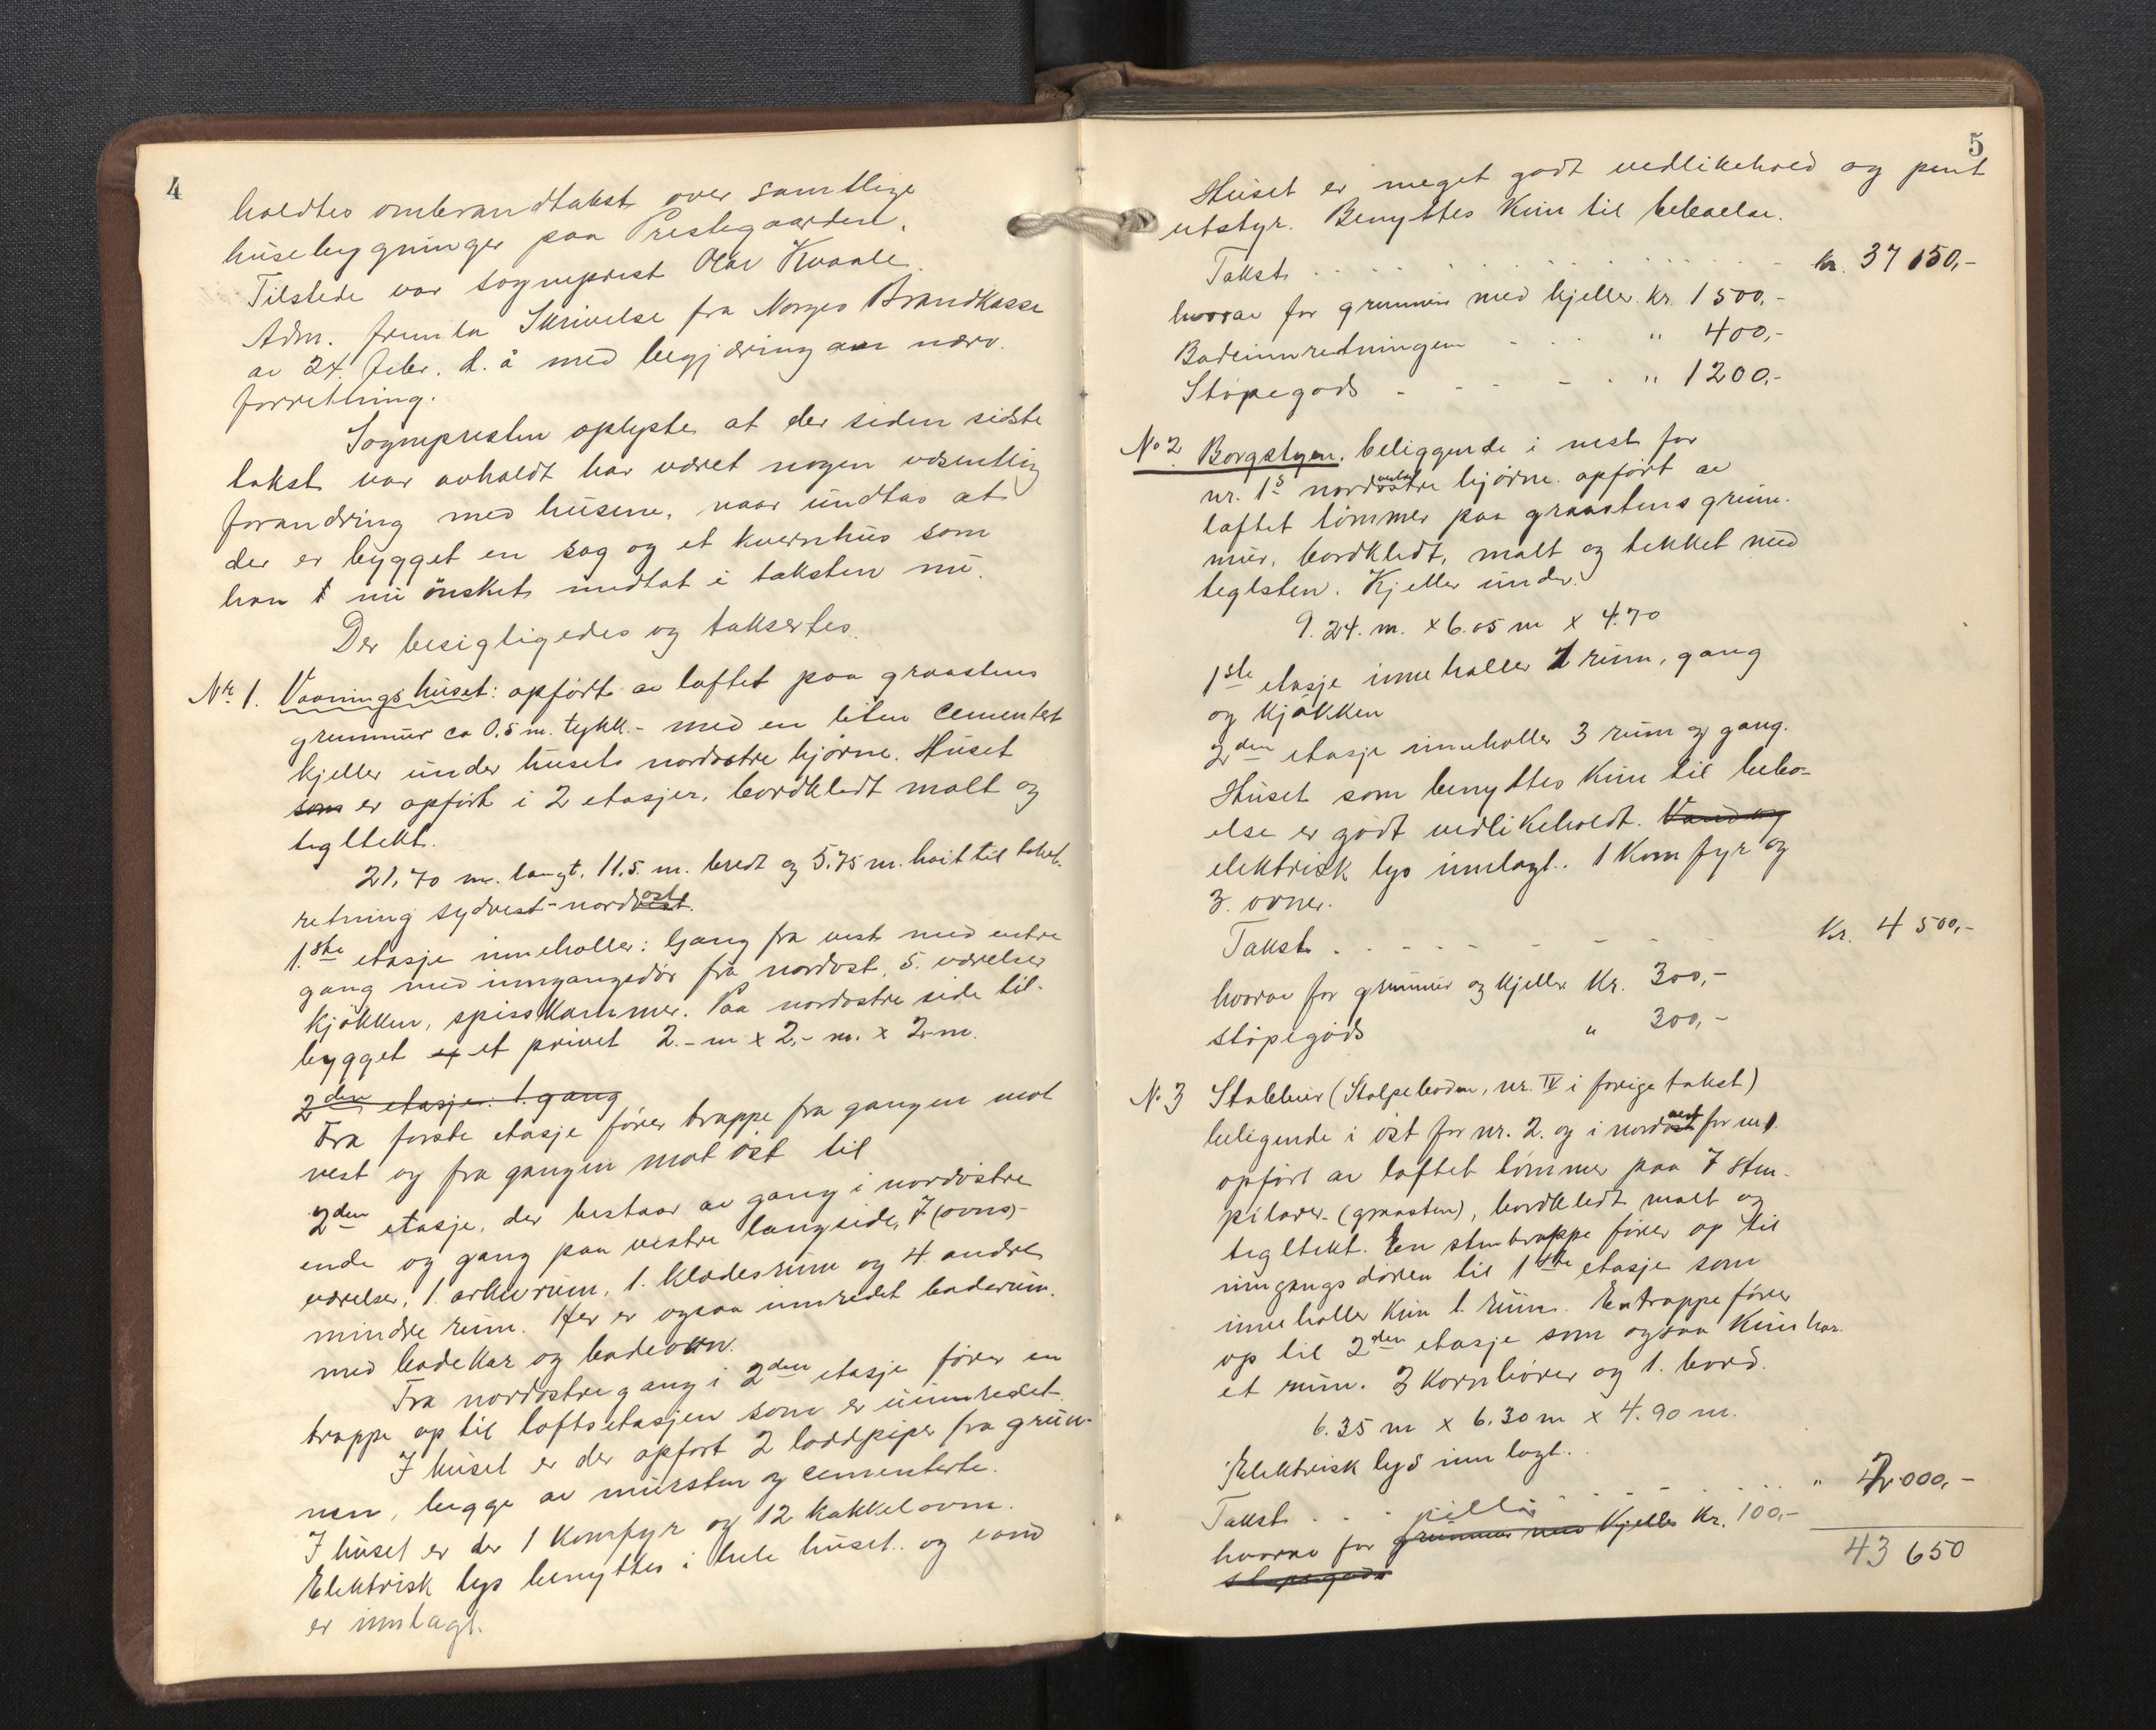 4
holdtes ombrandtakst over samtlige
husebygninger paa Prestegaarden.
Tilstede var sogneprest Olav Kvaale.
Adm. fremla Skrivelse fra Norges Brandkasse
av 24. febr. d. å med begjæring om nærv.
forretning.
Sognepresten oplyste at der siden sidste
takst var avholdt har været nogen væsentlig
forandring med husene, naar undtas at
der er bygget en sag og et kvernhus som
han nu ønsket medtat i taksten nu.
Der besigtigedes og taksertes.
Nr. 1. Vaaningshuset: opført av laftet paa graastens
grunmur ca 0.5 m. tykk. - med en liten cementert
kjeller under husets nordøstre hjørne. Huset
som er opført i 2 etasjer, bordkledt malt og
tegltekt.
21,70 m. langt, 11,5 m. bredt og 5,75 m. høit til taket.
retning sydvest-nordøst.
1.ste etasje inneholler: Gang fra vest med entre
gang med inngangsdør fra nordøst, 5. værelser
kjøkken, spisskammer. Paa nordøstre side til-
bygget et privet 2.- m x 2,- m. x 2-m.
2den etasje: 1. gang
Fra første etasje fører trappe fra gangen mot
vest og fra gangen mot øst til
2den etasje, der bestaar av gang i nordøstre
ende og gang paa vestre langside, 7 (ovns)-
værelser, 1. arkivrum, 1. klædesrum og 4 andre
mindre rum. Her er ogsaa innredet baderum.
med badekar og badeovn.
Fra nordøstre gang i 2den etasje fører en
trappe op til loftsetasjen som er uinnredet.
I huset er der opført 2 loddpiper fra grun-
nen, begge av mursten og cementerte.
I huset er der 1 komfyr og 12 kakkelovne.
Elektrisk lys benyttes i hele huset. og vand
er innlagt.
5
Huset er meget godt vedlikehold og pent
utstyr. Benyttes kun til beboelse.
Takst . . . . . . . . . . kr. 37 150,-
hvorav for grunmur med kjeller kr. 1500,-
Badeinnredningen - . . " 400,-
Støpegods - - - - . " 1200,-
No 2 Borgstuen. beliggende i vest for
nr. 1s nordvestre hjørne. opført av
laftet tømmer paa graastens grun-
mur, bordkledt, malt og tekket med
teglsten. Kjeller under.
9.24. m. x 6.05 m x 4.70
1ste etasje inneholler 1 rum, gang
og kjøkken
2den etasje inneholler 3 rum og gang.
Huset som benyttes kun til bebo-
else er godt vedlikeholdt. Vand og
elektrisk lys innlagt. 1 komfyr og
3. ovner.
Takst . - - - - - - - Kr. 4 500,-
hvorav for grunmur og kjeller Kr. 300,-
støpegods " 300,-
No 3 Stabbur (Stolpeboden, nr. IV i forige takst)
beligende i øst for nr. 2. og i nordvest for nr 1.
opført av laftet tømmer paa 7 sten-
pilarer- (graasten), bordkledt malt og
tegltekt. En stentrappe fører op til
inngangsdøren til 1ste etasje som
inneholler kun 1. rum. En trappe fører
op til 2den etasje som ogsaa kun har
et rum. 3 kornbører og 1. bord.
6.35 m x 6.30 m x 4.90 m.
Elektrisk lys innlagt.
Takst . . . . . . . . " 2.000,-
pillar
hvorav for grunmur med kjeller Kr. 100,-
støpegods
43 650